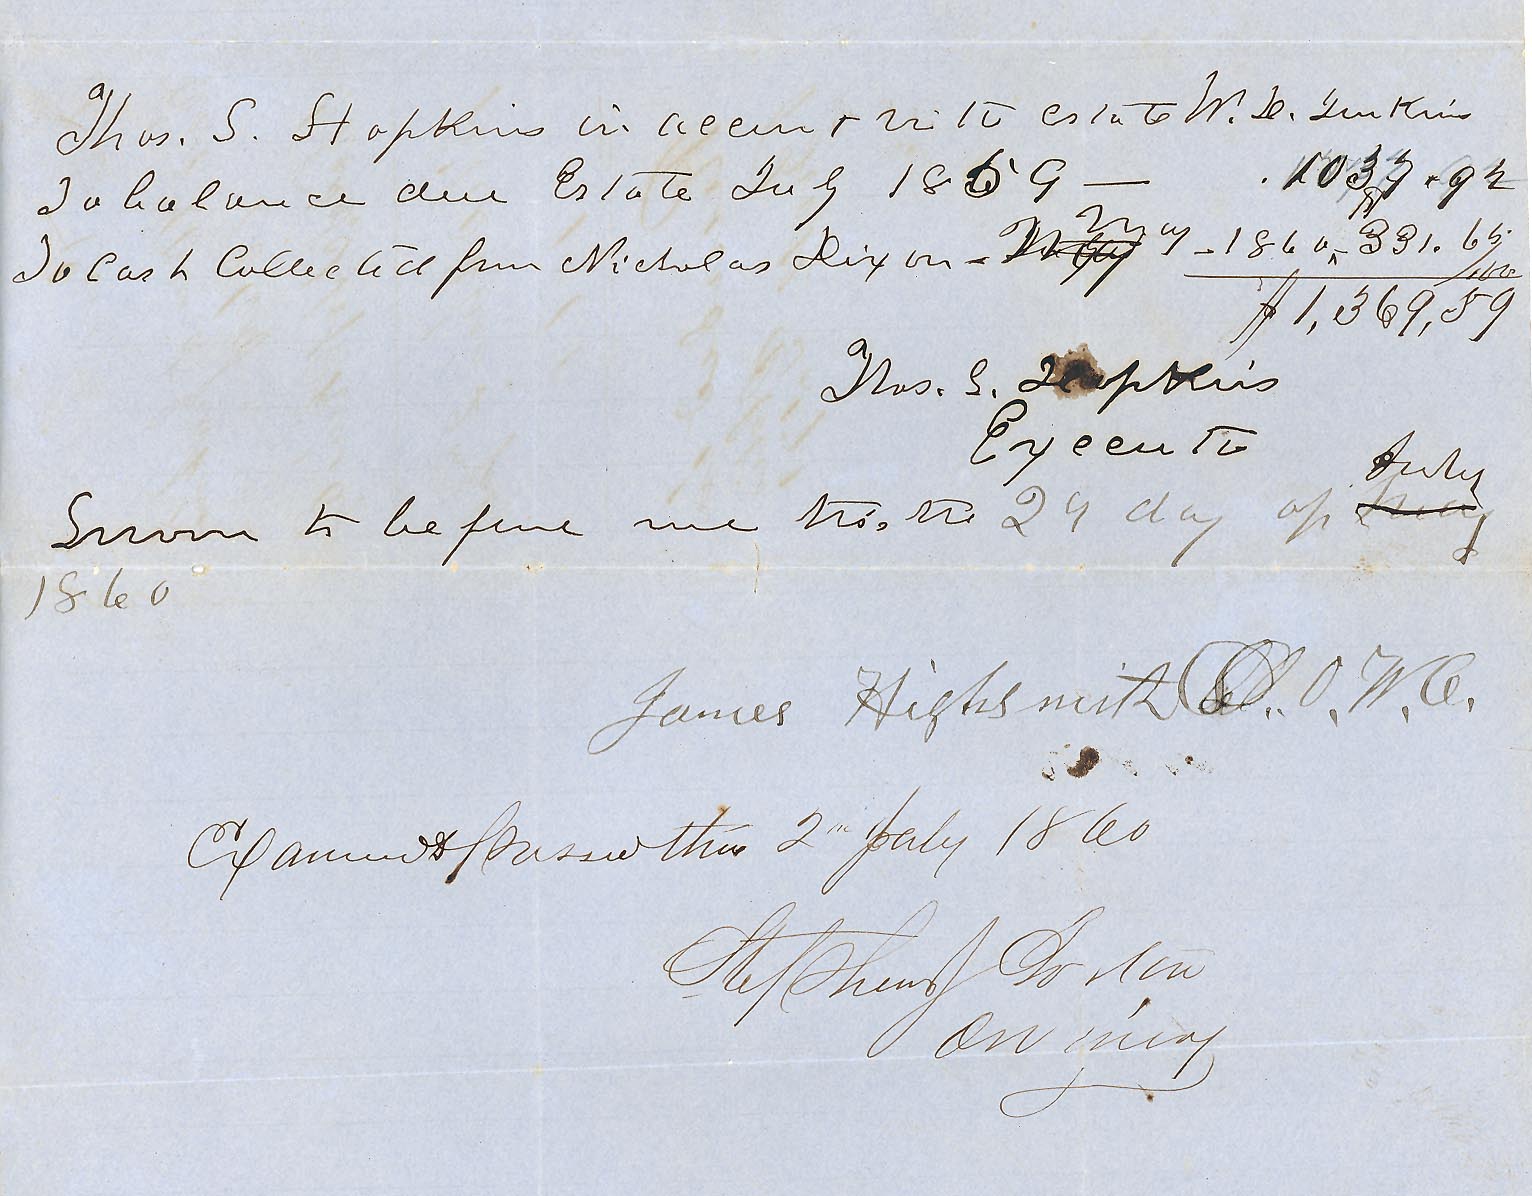 Thos. S. Hopkins in accunt with estate W. D. Jenkins
To balance due Estate July 1859 — 1037.94
To Cash Collected from Nicholas Dixon - May - 1860, $331.65/100
$1,369,59
Thos. S. Hopkins
Executo
Sworn to before me this the 2 day of July
1860
James Highsmith O.W.C.
Examined & Passed this 2nd July 1860
Ordinary